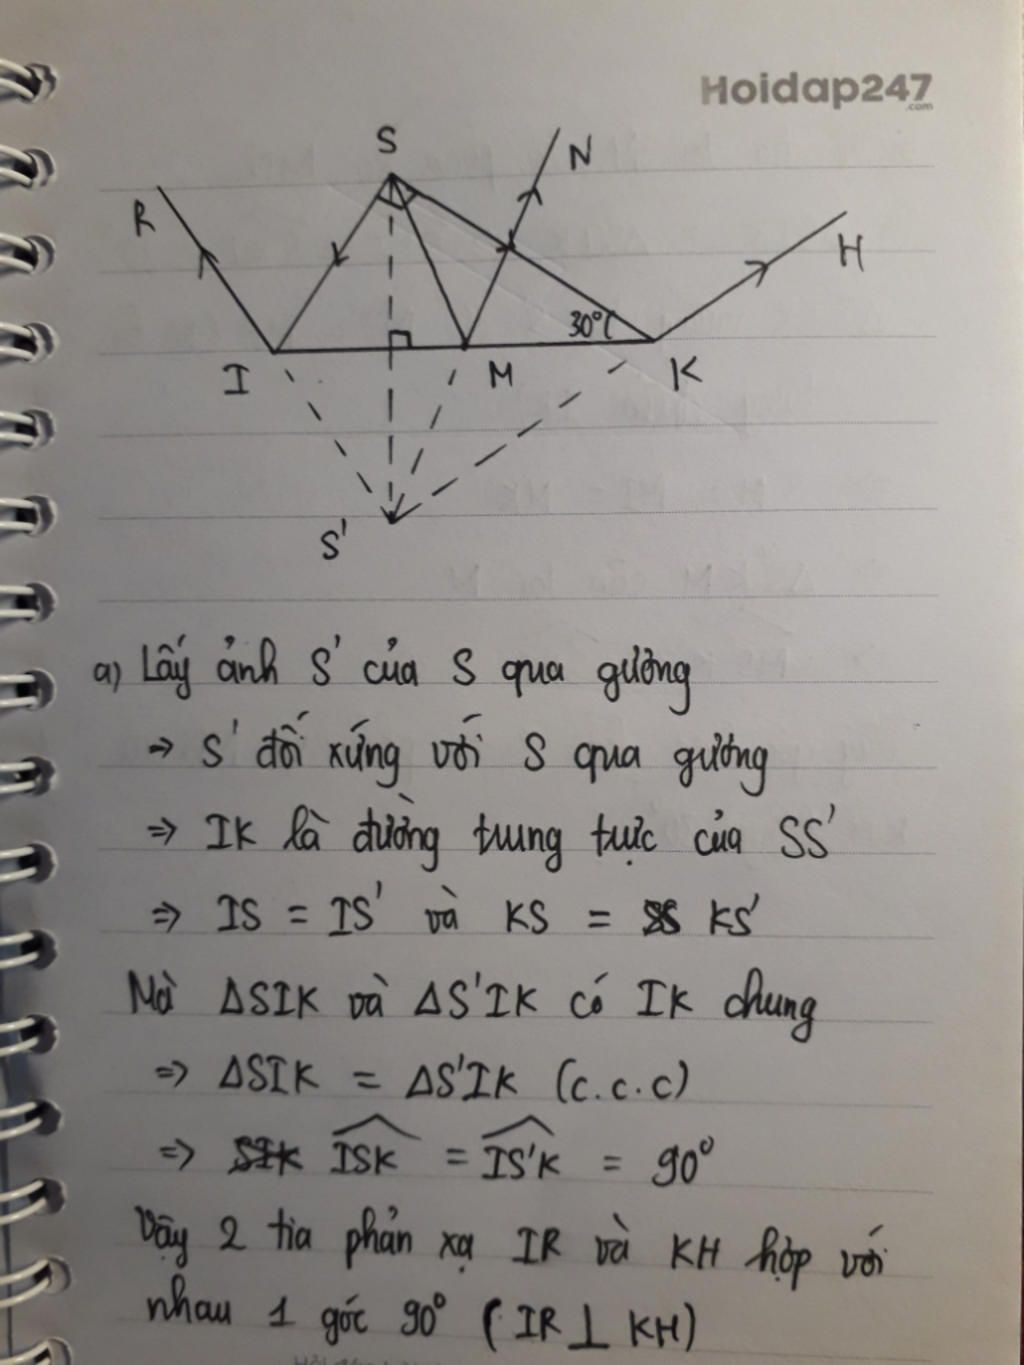 Hoidap247
.com
S
N
R
H
30°
I
M
K
S'
a) Lấy ảnh S' của S qua gương
=> S' đối xứng với S qua gương
=> IK là đường trung trực của SS'
=> IS = IS' và KS = KS'
Mà ΔSIK và ΔS'IK có IK chung
=> ΔSIK = ΔS'IK (c.c.c)
=> ISK = IS'K = 90°
Vậy 2 tia phản xạ IR và KH hợp với
nhau 1 góc 90° (IR ⊥ KH)